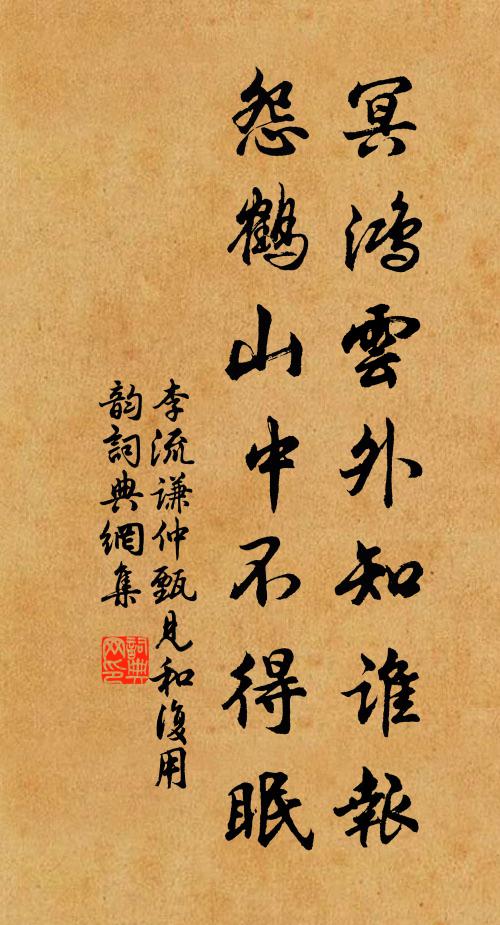 冥鴻雲外知誰報
怨鶴山中不得眠
李流謙仲甄見和復用
韵詞典網集
詞典
网印